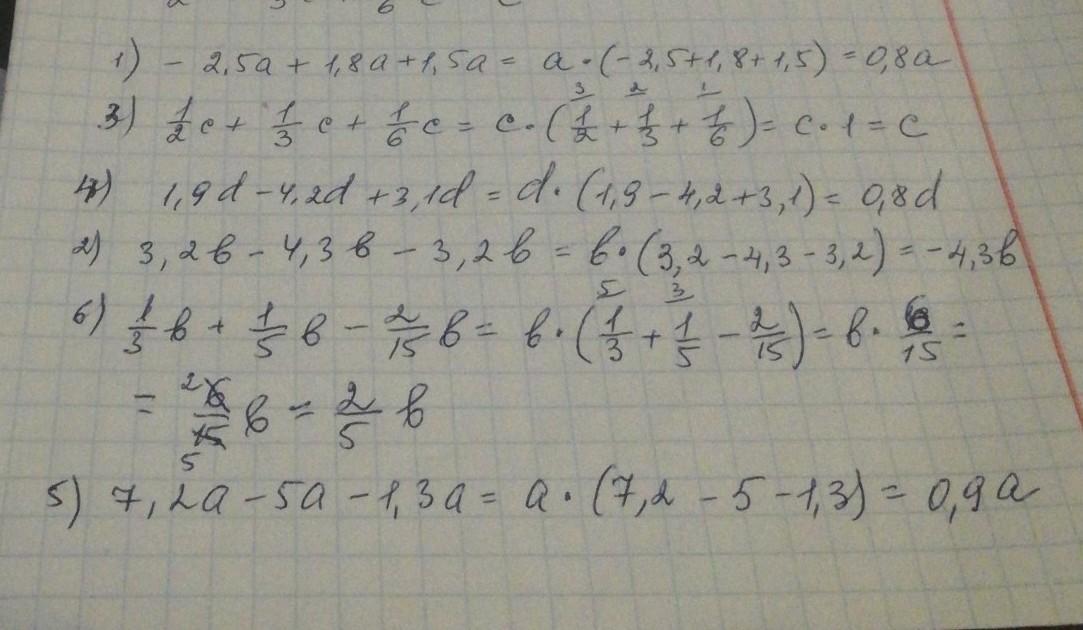 1) - 2,5a + 1,8a + 1,5a = a · (-2,5 + 1,8 + 1,5) = 0,8a
3) 1/2 c + 1/3 c + 1/6 c = c · (1/2 + 1/3 + 1/6) = c · 1 = c
4) 1,9d - 4,2d + 3,1d = d · (1,9 - 4,2 + 3,1) = 0,8d
2) 3,2b - 4,3b - 3,2b = b · (3,2 - 4,3 - 3,2) = -4,3b
6) 1/3 b + 1/5 b - 2/15 b = b · (1/3 + 1/5 - 2/15) = b · 6/15 =
= 6/15 b = 2/5 b
5) 7,2a - 5a - 1,3a = a · (7,2 - 5 - 1,3) = 0,9a